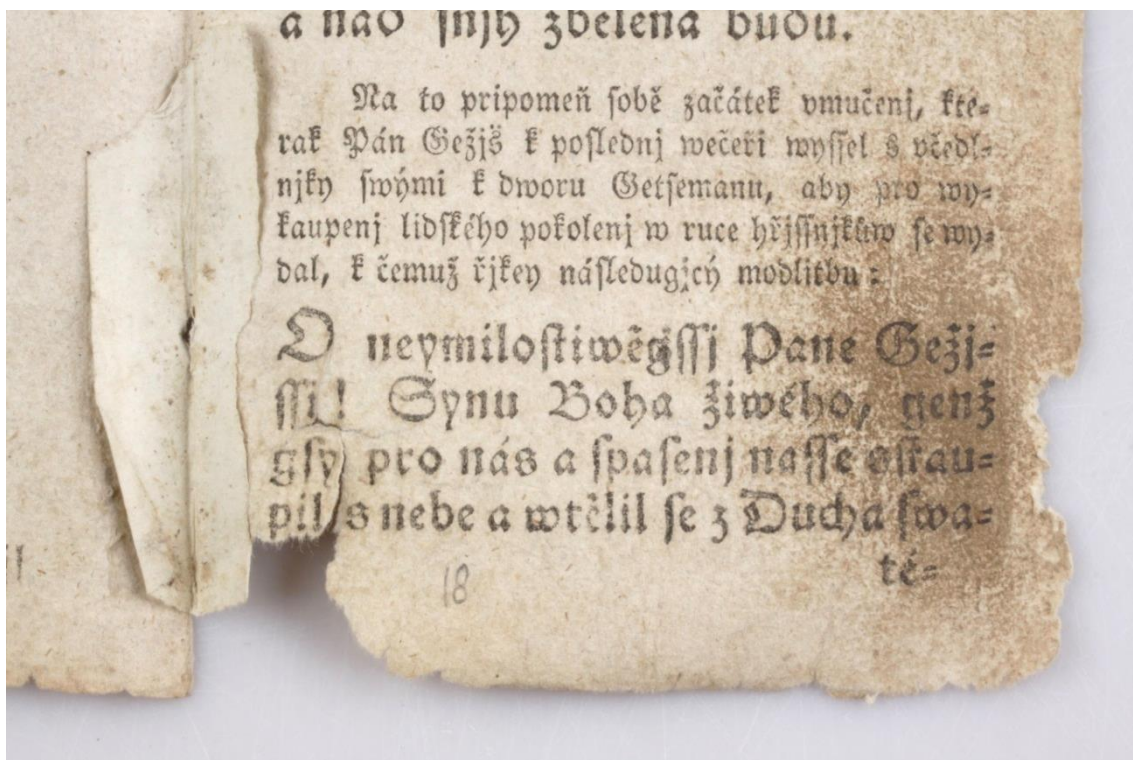 a nad ſnjh zbelena budu.
Na to pripomeň ſobě začátek vmučenj, kte⸗
rak Pán Gežjš k poſlednj wečeři wyſſel s včedl⸗
njky ſwými k dworu Getſemanu, aby pro wy⸗
kaupenj lidſkého pokolenj w ruce hřjſſnjkůw ſe wy⸗
dal, k čemuž řjkey náſledugjcý modlitbu:
O neymiloſtiwěgſſj Pane Gežj⸗
ſſi! Synu Boha žiwého, genž
gſy pro nás a ſpaſenj naſſe sſtau⸗
pil s nebe a wtělil ſe z Ducha ſwa⸗
té⸗
18